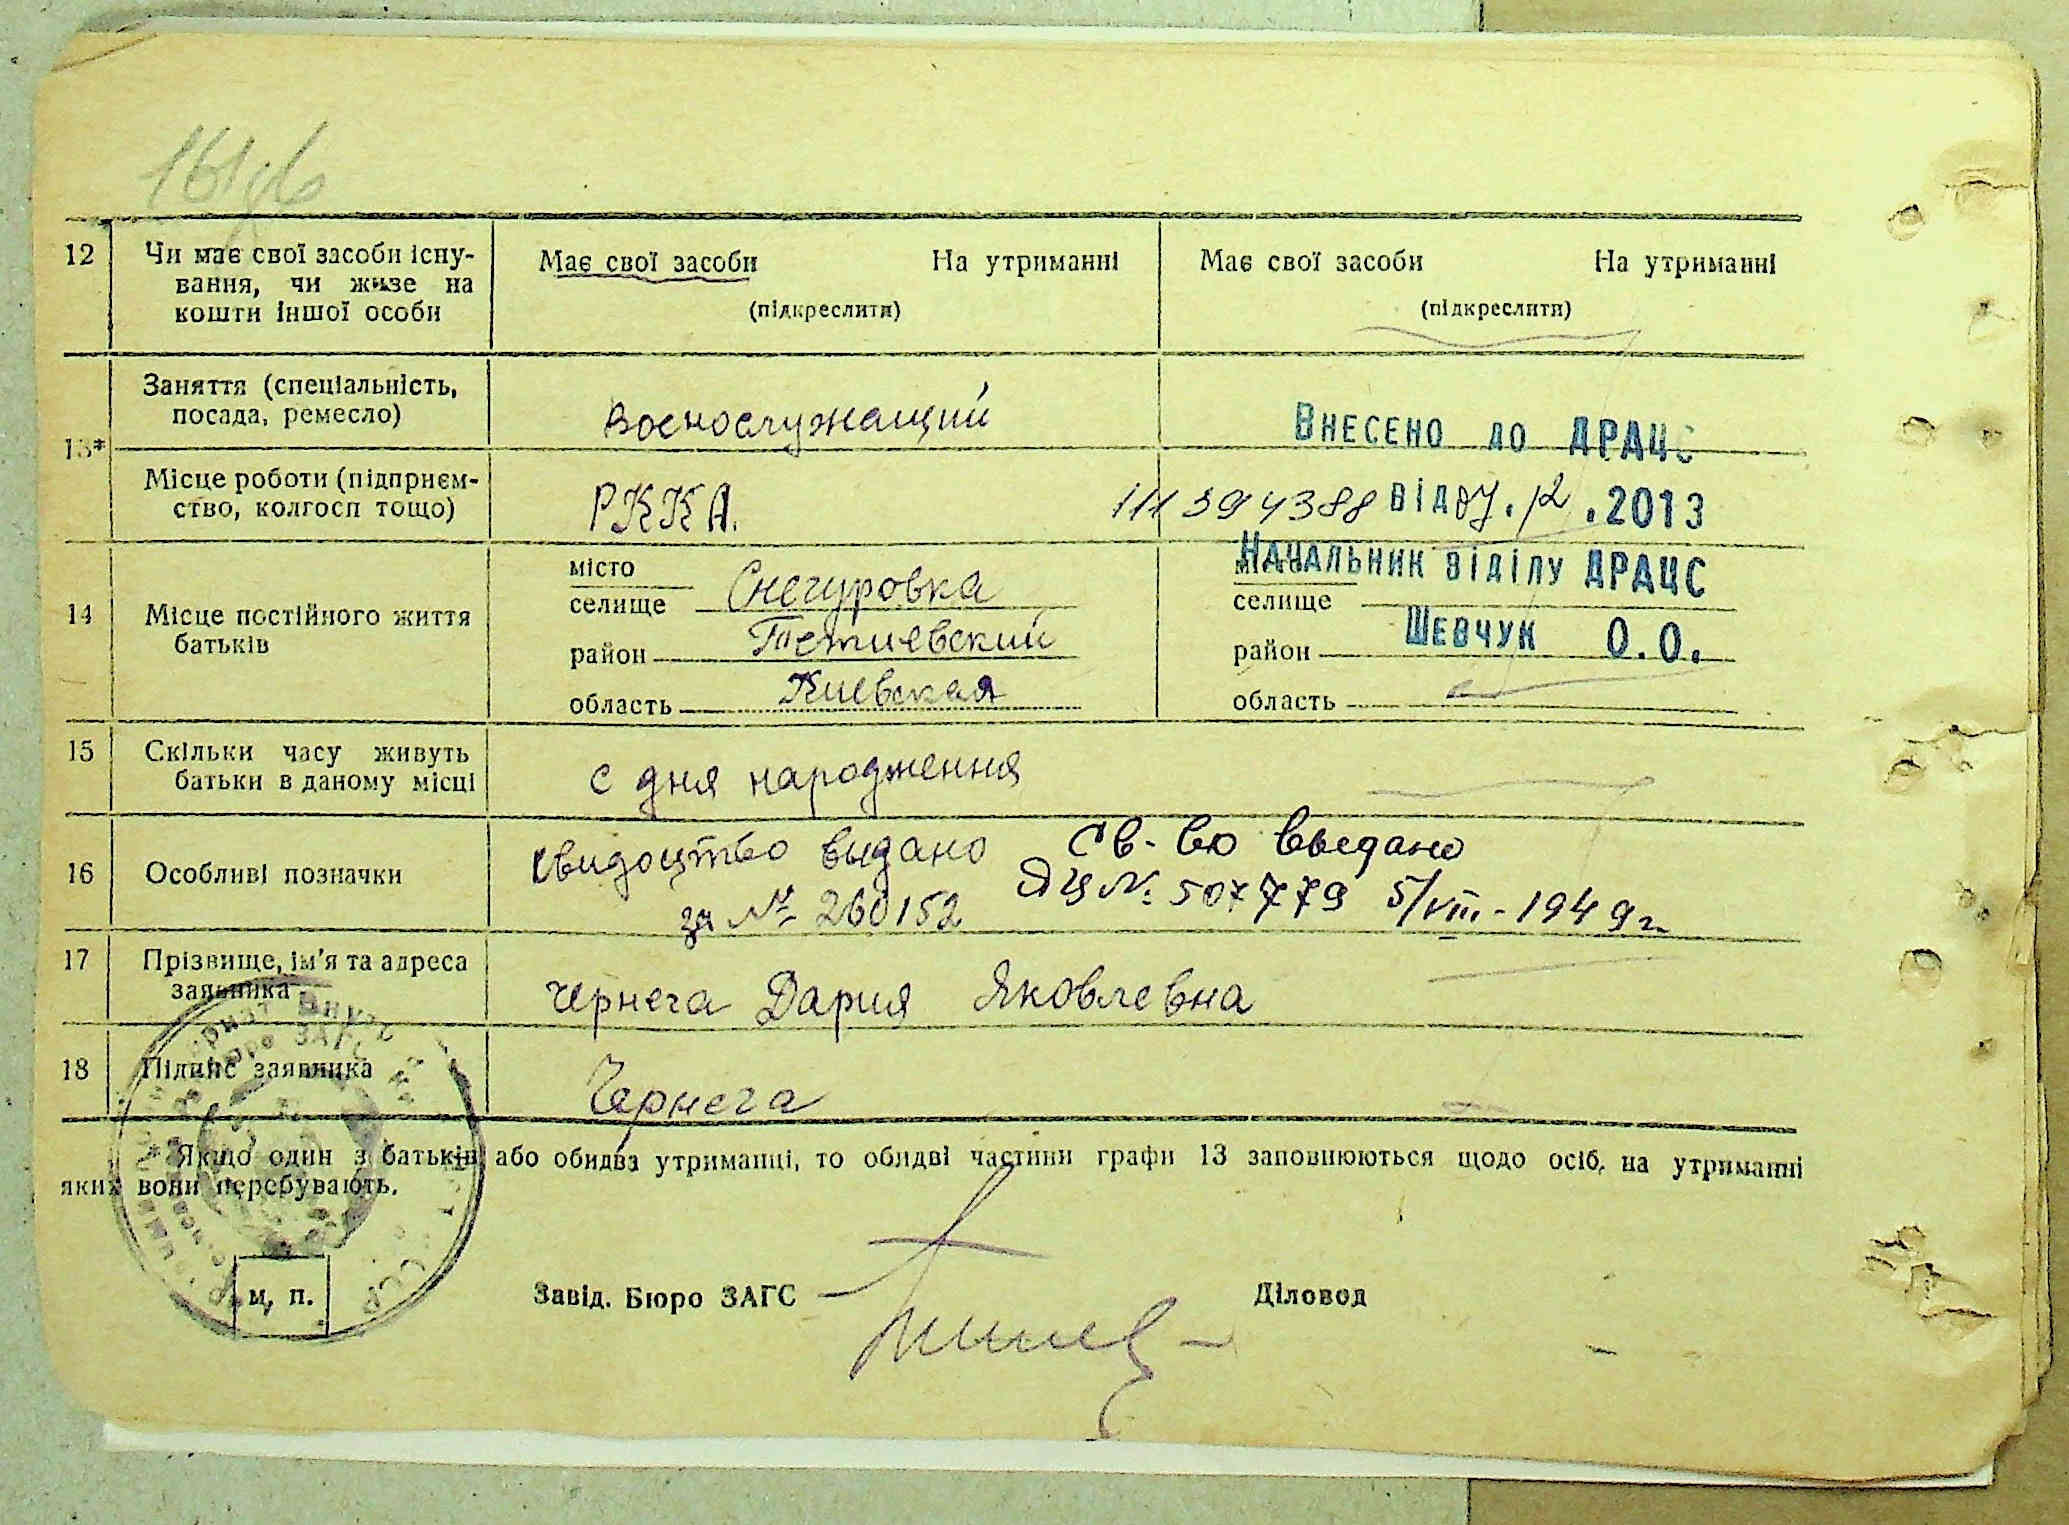 12 Чи має свої засоби існу-
вання, чи живе на
кошти іншої особи
Має свої засоби На утриманні
(підкреслити)
Має свої засоби На утриманні
(підкреслити)
13*
Заняття (спеціальність,
посада, ремесло)
военослужащий
Внесено до ДРАЦС
Місце роботи (підприєм-
ство, колгосп тощо)
РККА.
111394388 від 04.12.2013
Начальник відділу ДРАЦС
Шевчук О.О.
14 Місце постійного життя
батьків
місто
селище Снегуровка
район Тетиевский
область Киевская
селище
район
область
15 Скільки часу живуть
батьки в даному місці
с дня народження
16 Особливі позначки
свидоцтво выдано
за № 260152
Св-во выдано
ЯЦ № 507779 5/VIII-1949 г
17 Прізвище, ім'я та адреса
заявника
Чернега Дария Яковлевна
18 Підпис заявника
Чернега
* Якщо один з батьків або обидва утриманці, то обидві частини графи 13 заповнюються щодо осіб, на утриманні
яких вони перебувають.
м, п.
Завід. Бюро ЗАГС
Діловод